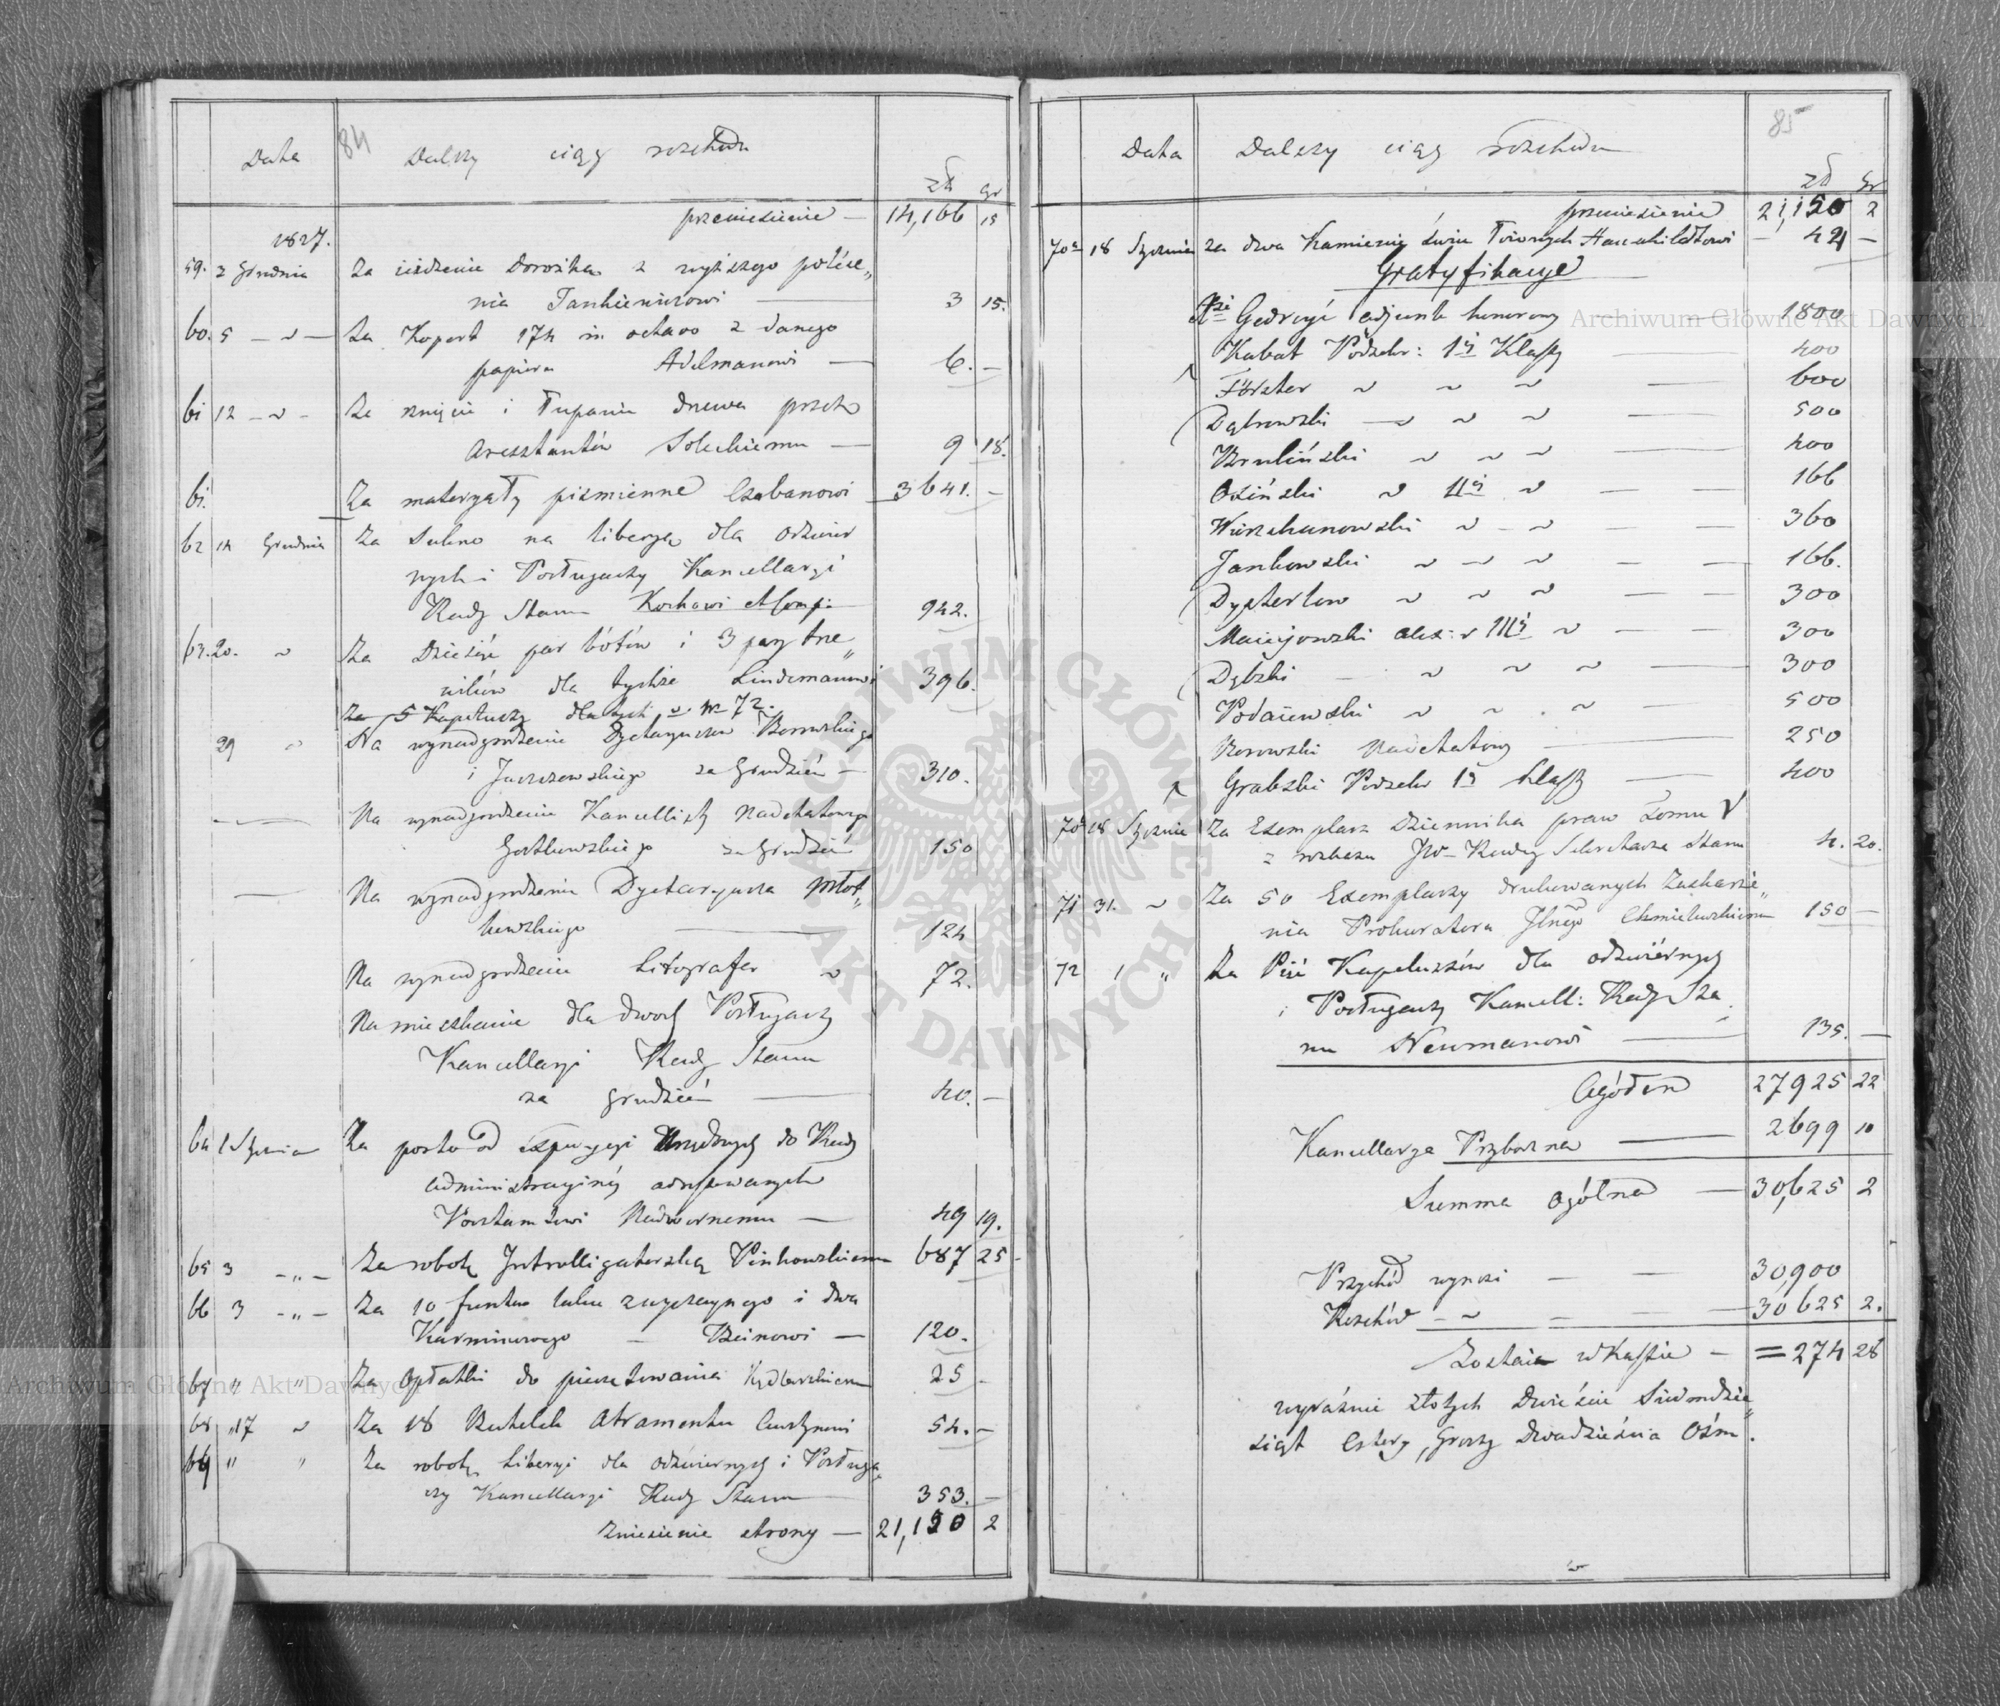 84
Data Dalszy ciąg rozchodu
zł gr
przeniesienie — 14,166 15
1827.
59. 2 Grudnia Za jeżdżenie Dorożką z wyższego polece„
nia Jankiewiczowi — 3 15.
60. 5 — „ — Za Kopert 174 in octavo z danego
papieru Adelmanowi — 6. —
61 12 — „ — Za rznięcie i łupanie drzewa przez
Aresztantów Soleckiemu — 9 18.
61. Za materyały piśmienne Czabanowi 3641. —
62 14 Grudnia Za Sukno na liberyą dla odźwier
nych i Posługaczy Kancellaryi
Rady Stanu Kochowi et Comp: 942.
63. 20. „ Za Dziesięć par bótów i 3 pary trze„
wików dla tychże Lindemanowi 396.
Za 5 Kapeluszy dla tych v. Nr 72.
29 „ Na wynadgrodzenie Dyetaryusza Borowskiego
i Juszczewskiego za Grudzień — 310.
— Na wynadgrodzenie Kancellisty Nadetatowego
za Grudzień 150
— Na wynadgrodzenie Dyetaryusza
kowskiego — 124
Na wynadgrodzenie Litografa „ 72.
Na mieszkanie dla dwóch Posługaczy
Kancellaryi Rady Stanu
za grudzień — 40. —
64 1 Stycznia Za porto od expedycyi Urzędowych do Rady
Administracyjnej adressowanych
Pocztamtowi Nadwornemu — 49 19.
65 3 — „ — Za robotę Introlligatorską Pinkowskiemu 687 25
66 3 — „ — Za 10 funtów laku zwyczaynego i dwa
Karminowego — Beinowi — 120.
67 „ „ Za Opłatki do pieczętowania 25 —
68 „ 17 „ Za 18 Butelek Atramentu 54. —
69 „ „ Za robotę Liberyi dla odźwiernych i Posługa„
czy Kancellaryi Rady Stanu 353. —
Zniesienie strony — 21,150 2
85
Data Dalszy ciąg rozchodu
zł gr
przeniesienie 21,150 2
70a 18 Stycznia za dwa Kamienie świec Łoiowych Hanchildtowi — 42 —
Gratyfikacye
Giedroyć adjunkt honorowy — 1800
Kubat Podsekr: 1éj Klassy — 400
Förster „ „ „ — 600
Dąbrowski — „ „ „ — 500
Wrubliński „ „ „ — 400
Osiński „ IIéj „ — 166
Wierzchanowski „ — „ — 360
Jankowski „ — „ — 166.
Dyzterlow „ „ „ — 300
Maciejowski Alex: „ IIIéj „ — 300
Dębski — „ „ „ — 300
Podaiewski „ „ . „ — 500
Borowski Nadetatowy — 250
Grabski Podsekr 1éj klassy — 400
70 18 Stycznia Za Exemplarz Dziennika praw tomu V
z rozkazu JW Radcy Sekretarza Stanu 4. 20.
71 31. „ Za 50 Exemplarzy drukowanych Zaskarże„
nia Prokuratora Jlnego Chmielewskiemu 150 —
72 1 „ Za Pięć Kapeluszów dla odźwiernych
i Posługaczy Kancell: Rady Sta
nu Neumanowi — 135. —
Ogółem 27925 22
Kancellarya Przyboczna — 2699 10
Summa ogólna — 30,625 2
Przychód wynosi — 30,900
Rozchód — „ — 30625 2.
Zostaie w Kassie — = 274 28
wyraźnie złotych Dwieście Siedmdzie„
siąt Cztery, Groszy Dwadzieścia Ośm.
Archiwum Główne Akt Dawnych
Archiwum Główne Akt Dawnych
ARCHIWUM GŁÓWNE AKT DAWNYCH